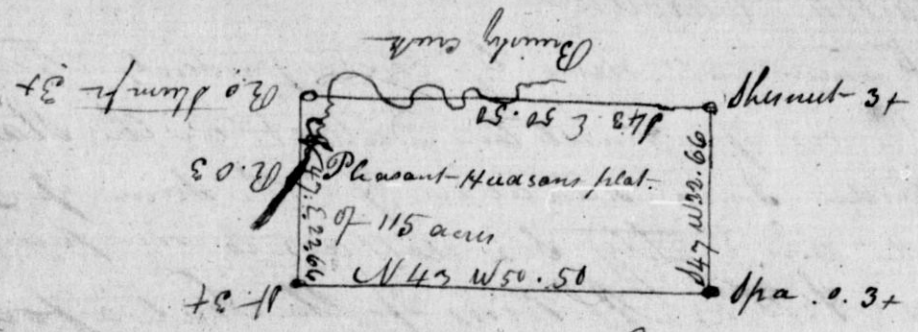 Brushy Creek
R.o Stump 3+
Chesnut 3+
S 43. E 50.50
R.O 3
Pleasant Hudsons plat.
of 115 acres
N 47. E 22,66
S 47 W 32.66
N 43 W 50.50
St. 3+
Spa. o. 3+